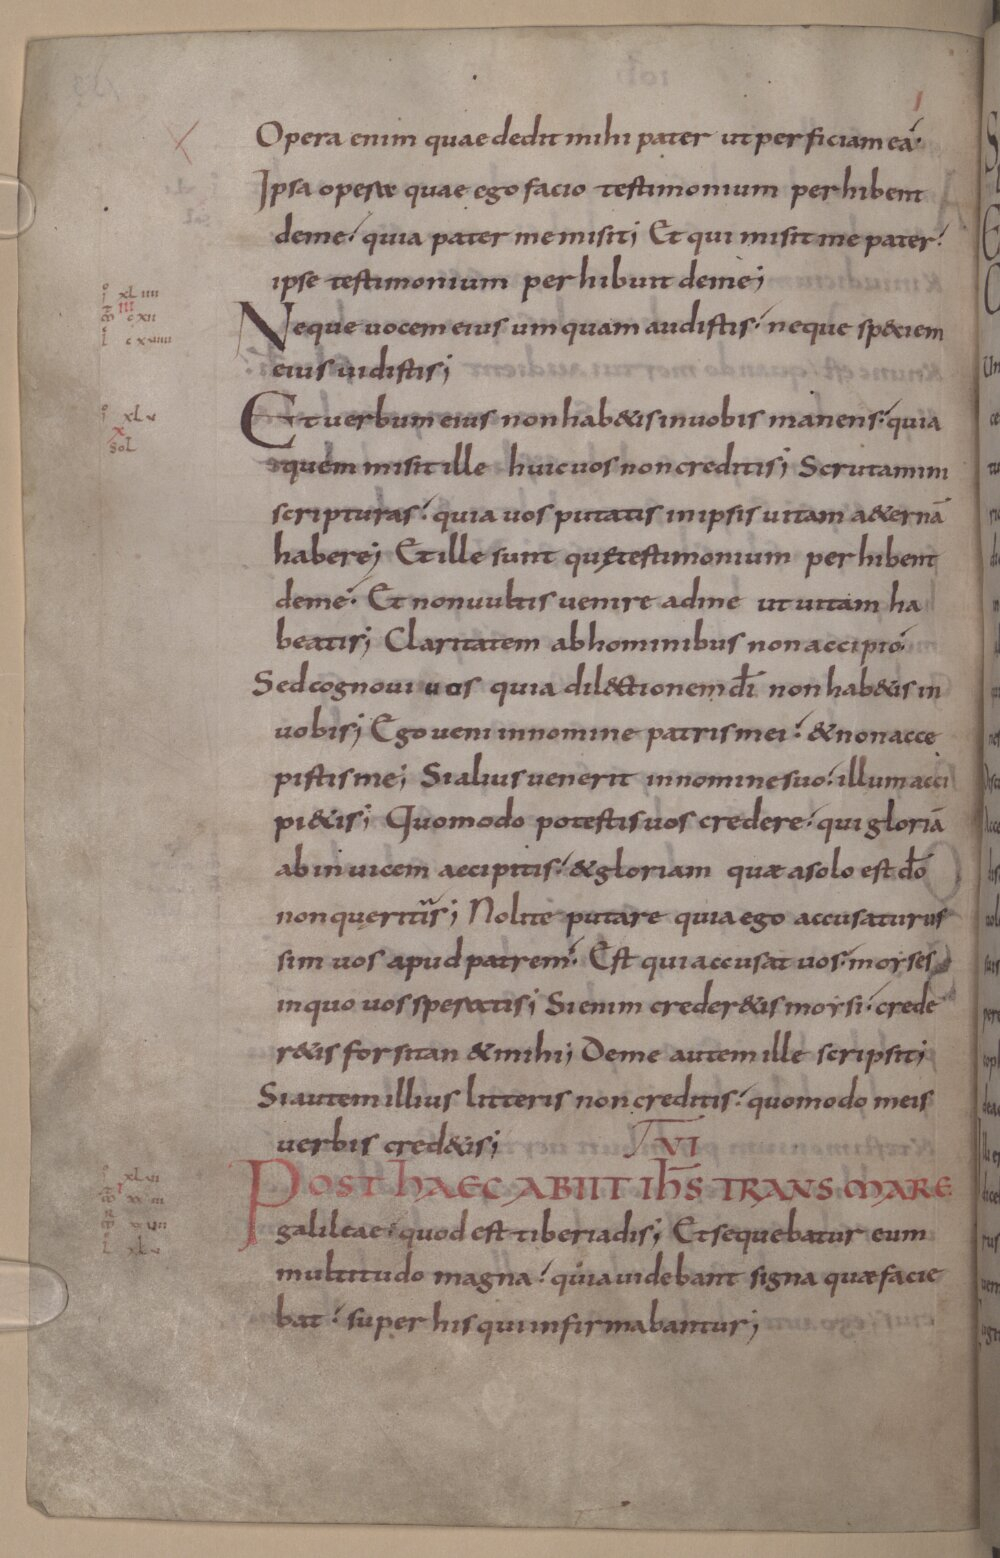 Opera enim quae dedit mihi pater ut perficiam ea
Ipsa opera quae ego facio testimonium perhibent
de me quia pater me misit; Et qui misit me pater
ipse testimonium perhibuit de me;
Neque uocem eius umquam audistis neque speciem
eius uidistis;
Et uerbum eius non hab&is in uobis manens quia
quem misit ille huic uos non creditis; Scrutamini
scripturas quia uos putatis in ipsis uitam a&ernā
habere; Et ille sunt quę testimonium perhibent
de me. Et non uultis uenire ad me ut uitam ha
beatis; Claritatem ab hominibus non accipio.
Sed cognoui uos quia dil&ctionem d̄i non hab&is in
uobis; Ego ueni in nomine patris mei & non acce
pistis me; Si alius uenerit in nomine suo illum acci
pi&is; Quomodo potestis uos credere qui gloriā
ab inuicem accipitis & gloriam quae a solo est d̄o
non queritis; Nolite putare quia ego accusaturus
sim uos apud patrem. Est qui accusat uos moyses
in quo uos speratis; Si enim creder&is moysi crede
r&is forsitan & mihi; De me autem ille scripsit;
Si autem illius litteris non creditis quomodo meis
uerbis cred&is;
VI
POST HAEC ABIIT IH̄S TRANS MARE
galileae quod est tiberiadis; Et sequebatur eum
multitudo magna quia uidebant signa quae facie
bat super his qui infirmabantur;